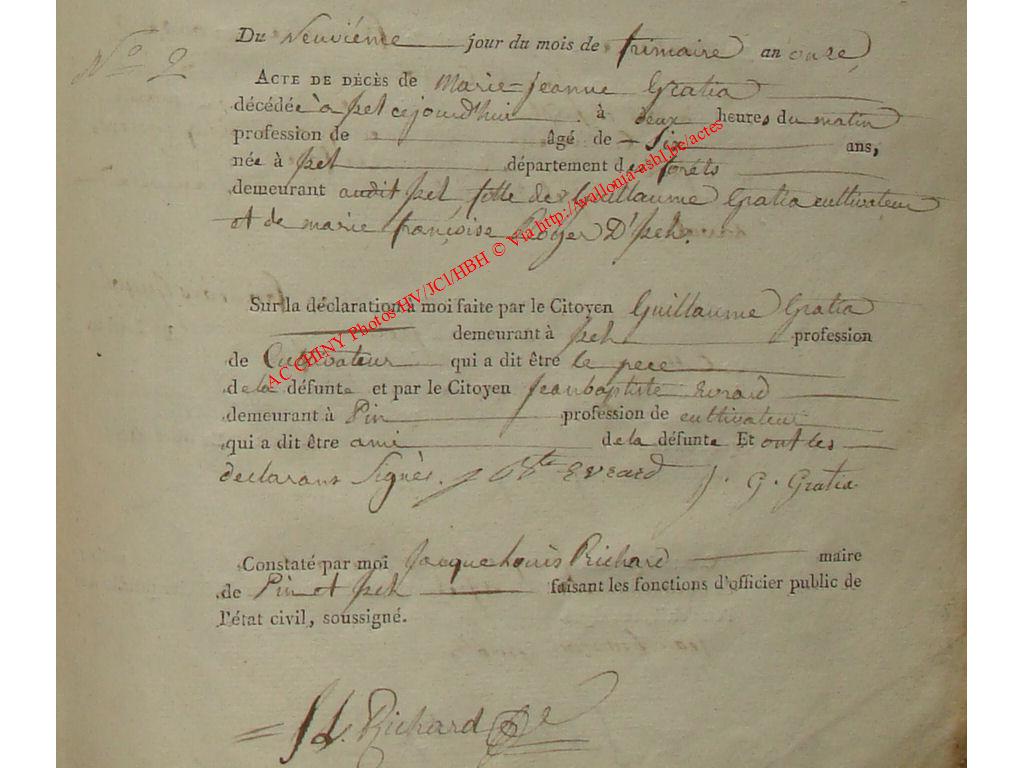 No 2
Du Neuviéme jour du mois de frimaire an onze,
ACTE DE DÉCÈS de Marie-Jeanne Gratia
décédée à Izel cejourd'hui à deux heures du matin
profession de âgé de Six ans,
née à Izel département des forêts
demeurant audit Izel fille de Guillaume Gratia cultivateur
et de marie françoise Royer D'Izel.
Sur la déclaration à moi faite par le Citoyen Guillaume Gratia
demeurant à Izel profession
de Cultivateur qui a dit être le pere
de la défunte et par le Citoyen Jean baptiste Evrard
demeurant à Pin profession de cultivateur
qui a dit être ami de la défunte Et ont les
declarans Signés. J Bte Evrard J. G. Gratia
Constaté par moi Jacque Louis Richard maire
de Pin et Izel faisant les fonctions d'officier public de
l'état civil, soussigné.
J L. Richard
AC CHINY Photos HV/JCl/HBH © Via http://wallonia-asbl.be/actes